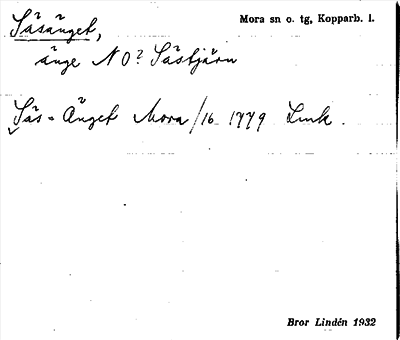 Såsänget, Mora sn o. tg, Kopparb. l.
änge NO? Såstjärn
Sås-Änget Mora/16 1779 Link.
Bror Lindén 1932